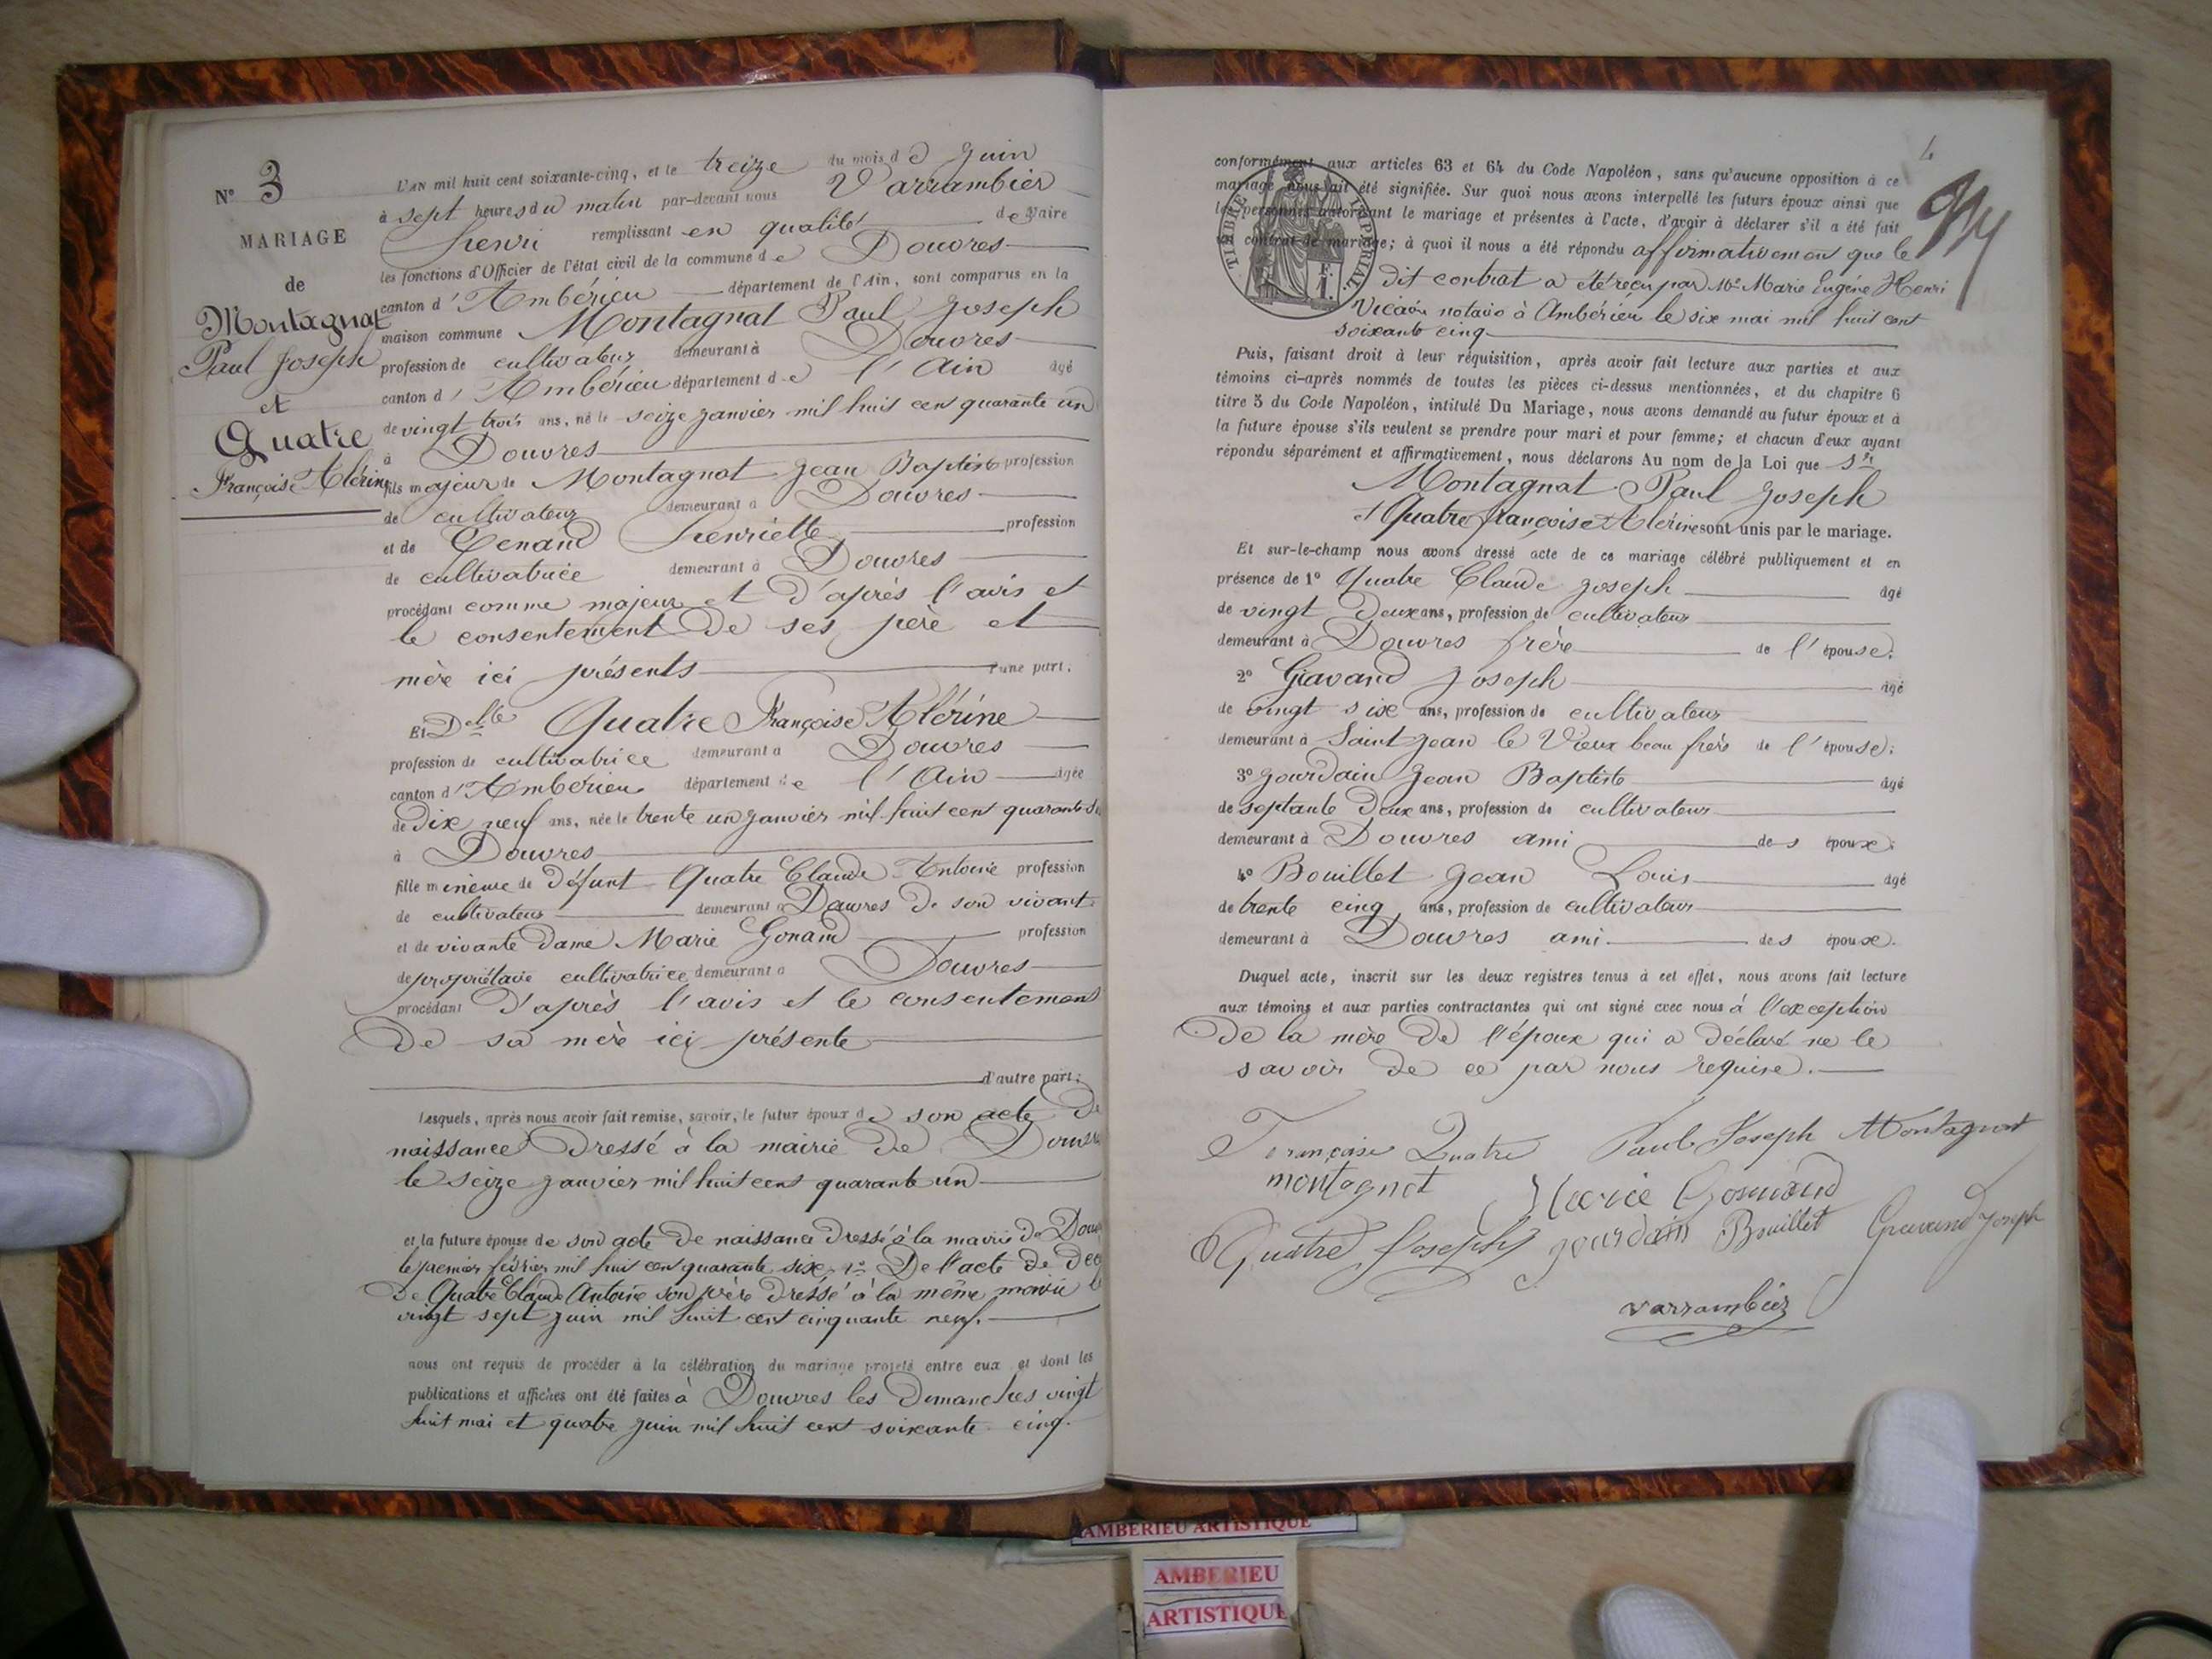 N° 3
MARIAGE
de
Montagnat
Paul Joseph
et
Quatre
Françoise Alérine
L'AN mil huit cent soixante-cinq, et le treize du mois de Juin
à sept heures du matin par-devant nous Varrambier
Henri remplissant en qualité de Maire
les fonctions d'Officier de l'état civil de la commune de Douvres
canton d'Ambérieu département de l'Ain, sont comparus en la
maison commune Montagnat Paul Joseph
profession de cultivateur demeurant à Douvres
canton d'Ambérieu département de l'Ain âgé
de vingt trois ans, né le seize janvier mil huit cent quarante un
à Douvres
fils majeur de Montagnat Jean Baptiste profession
de cultivateur demeurant à Douvres
et de Henriette profession
de cultivatrice demeurant à Douvres
procédant comme majeur et d'après l'avis et
le consentement de ses père et
mère ici présents d'une part;
Et Delle Quatre Françoise Alérine
profession de cultivatrice demeurant à Douvres
canton d'Ambérieu département de l'Ain âgée
de dix neuf ans, née le trente un janvier mil huit cent quarante
à Douvres
fille mineure de défunt Quatre Claude Antoine profession
de cultivateur demeurant à Douvres de son vivant
et de vivante dame Marie Gonand profession
de propriétaire cultivatrice demeurant à Douvres
procédant d'après l'avis et le consentement
de sa mère ici présente
d'autre part;
Lesquels, après nous avoir fait remise, savoir, le futur époux de son acte de
naissance dressé à la mairie de
le seize janvier mil huit cent quarante un
et la future épouse de son acte de naissance dressé à la mairie de
le premier février mil huit cent quarante six, 2° De l'acte de
de Quatre Claude Antoine son père dressé à la même mairie le
vingt sept juin mil huit cent cinquante neuf.
nous ont requis de procéder à la célébration du mariage projeté entre eux et dont les
publications et affiches ont été faites à Douvres les Dimanches vingt
huit mai et quatre juin mil huit cent soixante cinq.
4
TIMBRE IMPERIAL
F.
1.
conformément aux articles 63 et 64 du Code Napoléon, sans qu'aucune opposition à ce
mariage nous ait été signifiée. Sur quoi nous avons interpellé les futurs époux ainsi que
les personnes autorisant le mariage et présentes à l'acte, d'avoir à déclarer s'il a été fait
un contrat de mariage; à quoi il nous a été répondu affirmativement que le
dit contrat a été reçu par Me Marie Eugène Henri
notaire à Ambérieu le six mai mil huit cent
soixante cinq
Puis, faisant droit à leur réquisition, après avoir fait lecture aux parties et aux
témoins ci-après nommés de toutes les pièces ci-dessus mentionnées, et du chapitre 6
titre 5 du Code Napoléon, intitulé Du Mariage, nous avons demandé au futur époux et à
la future épouse s'ils veulent se prendre pour mari et pour femme; et chacun d'eux ayant
répondu séparément et affirmativement, nous déclarons Au nom de la Loi que Sr
Montagnat Paul Joseph
et Quatre françoise Alérine sont unis par le mariage.
Et sur-le-champ nous avons dressé acte de ce mariage célébré publiquement et en
présence de 1° Quatre Claude Joseph âgé
de vingt deux ans, profession de cultivateur
demeurant à Douvres frère de l'épouse.
2° Gravand Joseph âgé
de vingt six ans, profession de cultivateur
demeurant à Saint Jean le Vieux beau frère de l'épouse.
3° Jourdain Jean Baptiste âgé
de septante deux ans, profession de cultivateur
demeurant à Douvres ami des époux.
4° Bouillet Jean Louis âgé
de trente cinq ans, profession de cultivateur
demeurant à Douvres ami des époux.
Duquel acte, inscrit sur les deux registres tenus à cet effet, nous avons fait lecture
aux témoins et aux parties contractantes qui ont signé avec nous à l'exception
de la mère de l'époux qui a déclaré ne le
savoir de ce par nous requise.
Françoise Quatre Paul Joseph Montagnat
montagnat Marie Gonnand
Quatre Joseph jourdain Bouillet Gravand Joseph
varrambier
AMBERIEU ARTISTIQUE
AMBERIEU
ARTISTIQUE